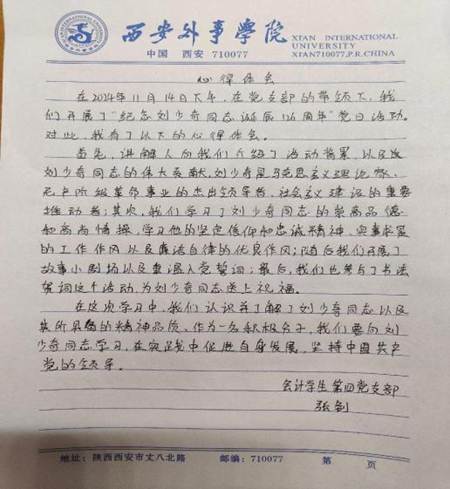 西安外事學院
XI'AN INTERNATIONAL
UNIVERSITY
中国 西安 710077
XIAN710077,P.R.CHINA
心得体会
在2024年11月14日下午,在党支部的带领下,我
们开展了“纪念刘少奇同志诞辰126周年”党日活动。
对此,我有了以下的心得体会。
首先,讲解人向我们介绍了活动背景,以及
刘少奇同志的伟大贡献,刘少奇是马克思主义理论家,
无产阶级革命事业的杰出领导者,社会主义建设的重要
推动者;其次,我们学习了刘少奇同志的崇高品德
和高尚情操,学习他的坚定信仰和忠诚精神,实事求是
的工作作风以及廉洁自律的优良作风;随后我们开展了
故事小剧场以及重温入党誓词;最后,我们也参与了书法
贺词这个活动,为刘少奇同志送上祝福。
在这次学习中,我们认识并了解了刘少奇同志以及
其所具备的精神品质。作为一名积极分子,我们要向刘
少奇同志学习,在实践中促进自身发展,坚持中国共产
党的领导。
会计学生第四党支部
张剑
地址:陕西西安市丈八北路 邮编:710077 第 页